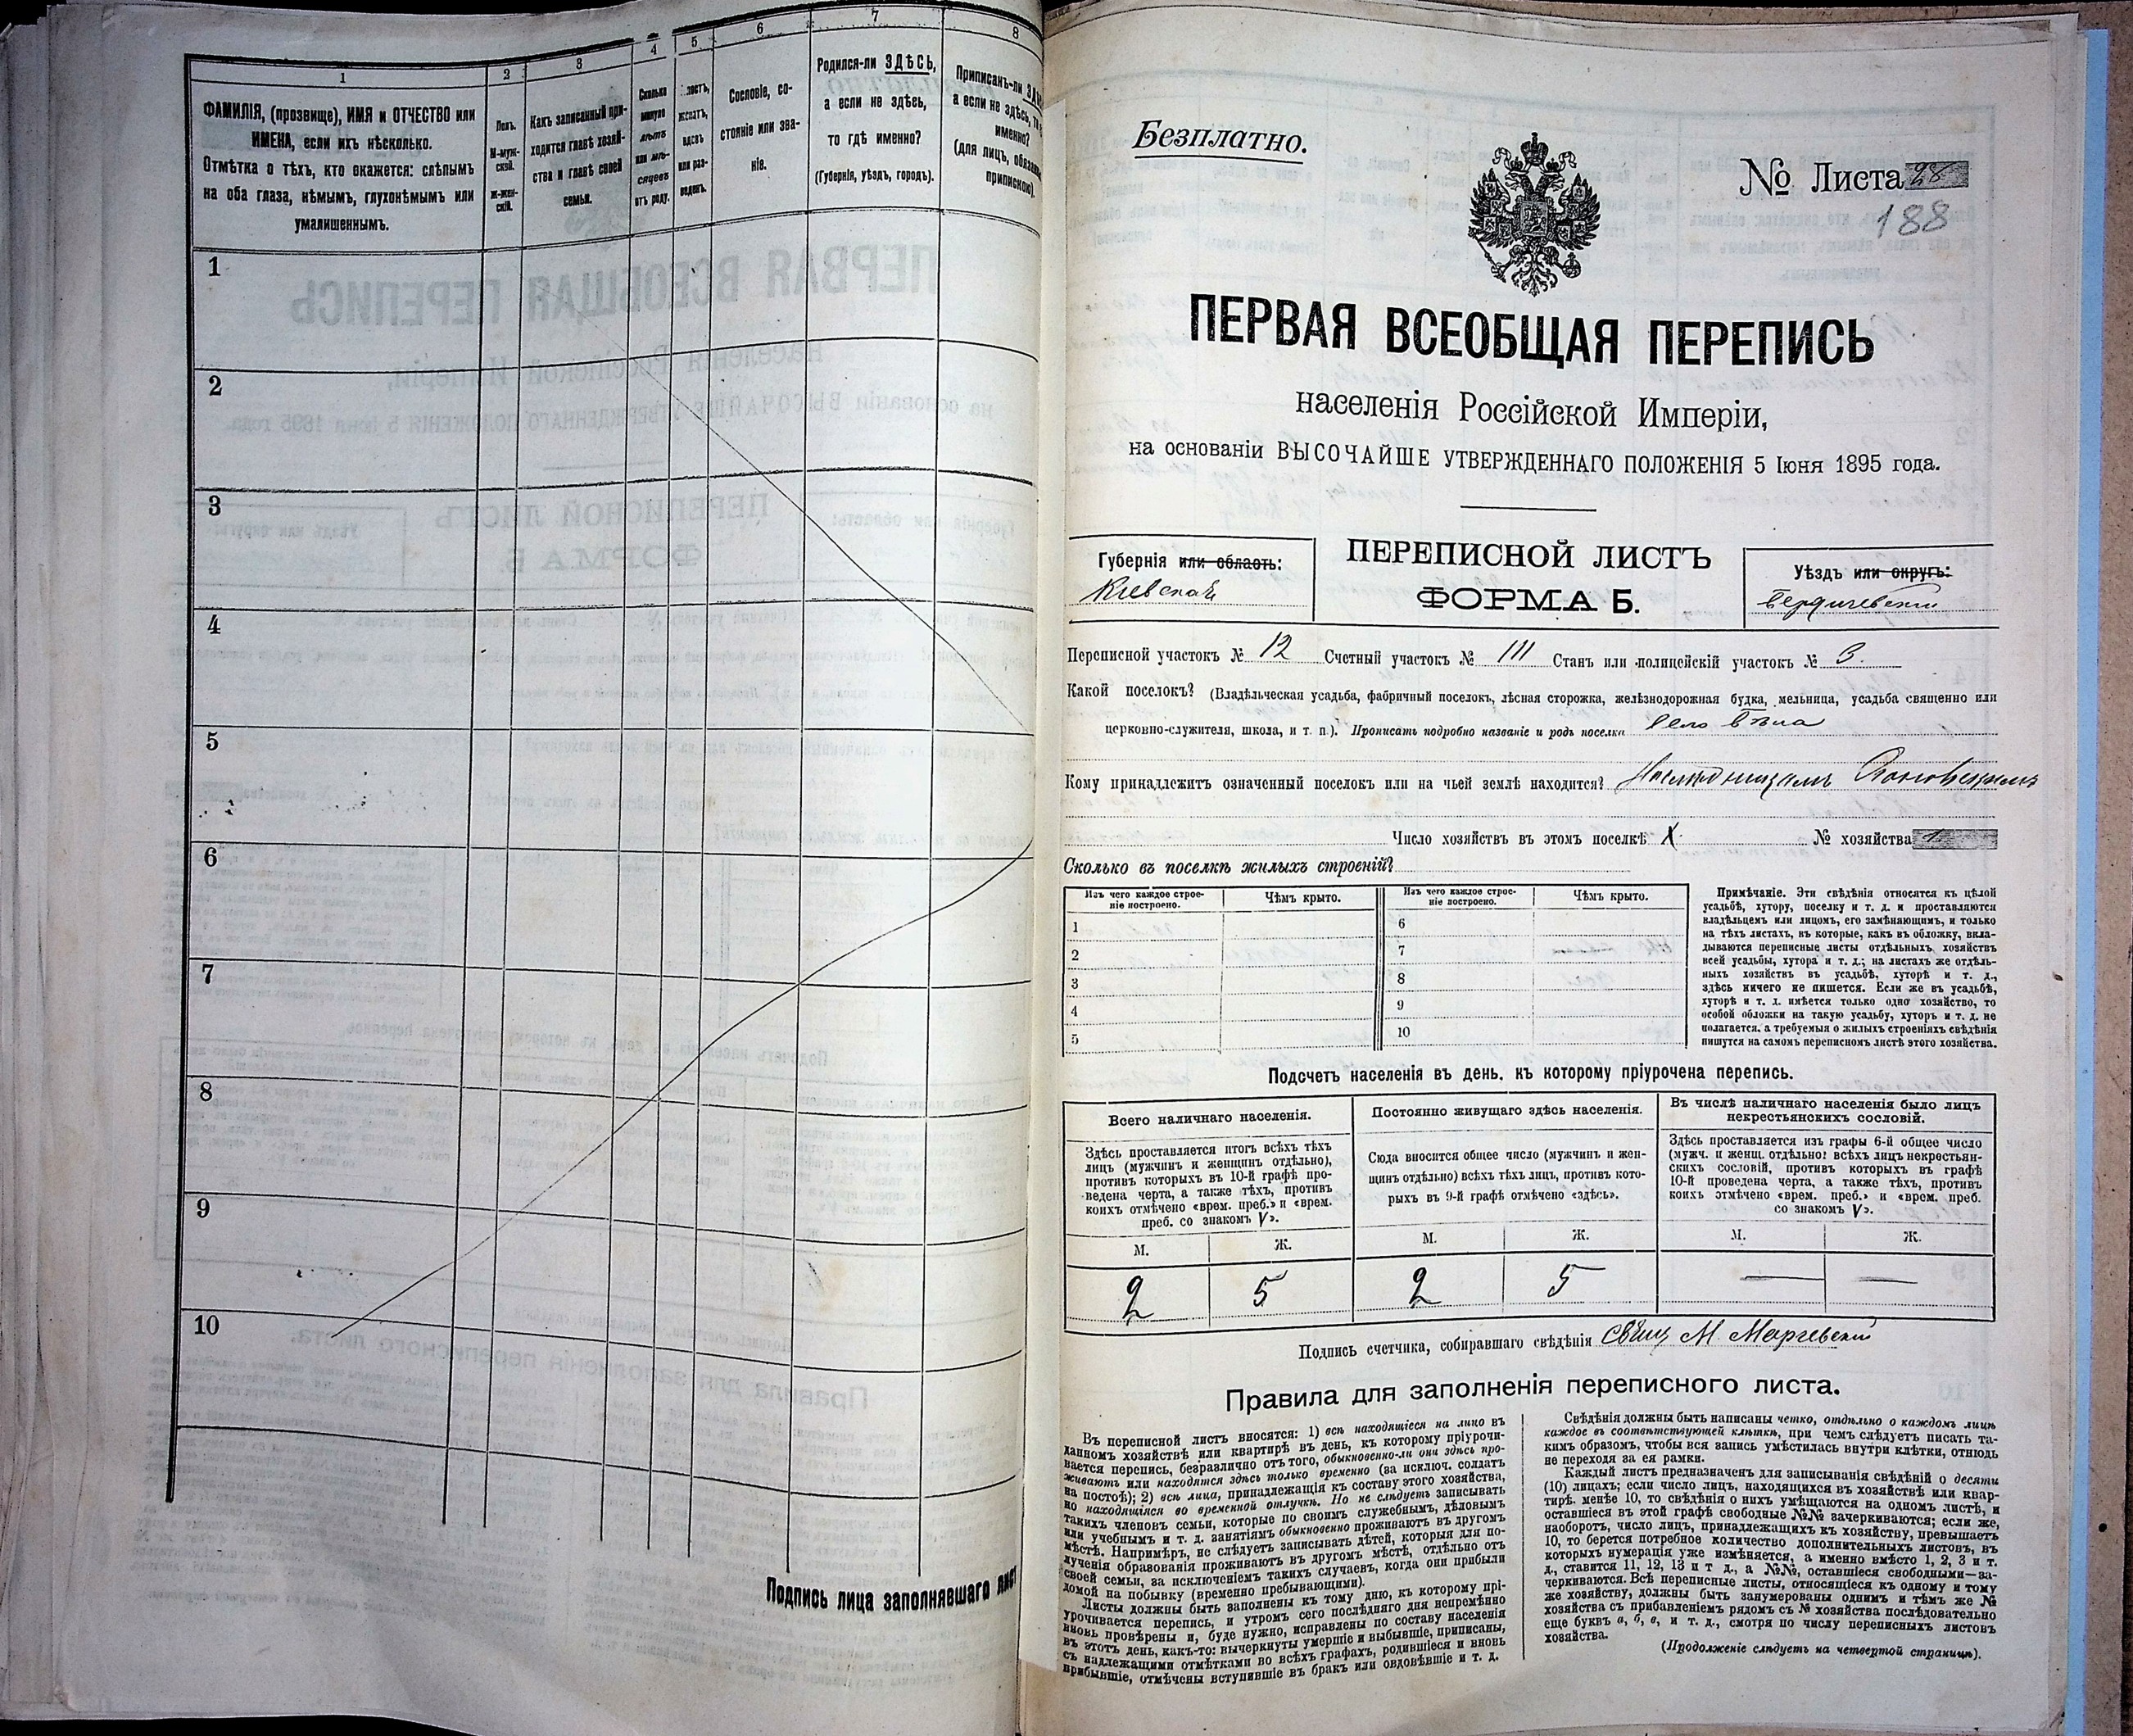 1
2
3
4
5
6
7
8
ФАМИЛІЯ, (прозвище), ИМЯ и ОТЧЕСТВО или
ИМЕНА, если ихъ нѣсколько.
Отмѣтка о тѣхъ, кто окажется: слѣпымъ
на оба глаза, нѣмымъ, глухонѣмымъ или
умалишеннымъ.
Полъ.
М-муж-
ской.
Ж-жен-
скій.
Какъ записанный при-
ходится главѣ хозяй-
ства и главѣ своей
семьи.
Сколько
минуло
лѣтъ
или мѣ-
сяцевъ
отъ роду.
лостъ,
женатъ,
вдовъ
или раз-
веденъ.
Сословіе, со-
стояніе или зва-
ніе.
Родился-ли ЗДѢСЬ,
а если не здѣсь,
то гдѣ именно?
(Губернія, уѣздъ, городъ).
Приписанъ-ли
а если не здѣсь,
именно?
(для лицъ,
припискою)
1
2
3
4
5
6
7
8
9
10
Подпись лица заполнявшаго
Безплатно.
№ Листа 28
188
ПЕРВАЯ ВСЕОБЩАЯ ПЕРЕПИСЬ
населенія Россійской Имперіи,
на основаніи ВЫСОЧАЙШЕ УТВЕРЖДЕННАГО ПОЛОЖЕНІЯ 5 Іюня 1895 года.
Губернія или область:
Кіевская
ПЕРЕПИСНОЙ ЛИСТЪ
ФОРМА Б.
Уѣздъ или округъ:
Бердичевскій
Переписной участокъ № 12 Счетный участокъ № III Станъ или полицейскій участокъ № 3.
Какой поселокъ? (Владѣльческая усадьба, фабричный поселокъ, лѣсная сторожка, желѣзнодорожная будка, мельница, усадьба священно или
церковно-служителя, школа, и т. п.). Прописать подробно названіе и родъ поселка село
Кому принадлежитъ означенный поселокъ или на чьей землѣ находится? Наслѣдницамъ
Число хозяйствъ въ этомъ поселкѣ X. № хозяйства 1.
Сколько въ поселкѣ жилыхъ строеній?
Изъ чего каждое строе-
ніе построено.
Чѣмъ крыто.
Изъ чего каждое строе-
ніе построено.
Чѣмъ крыто.
1
2
3
4
5
6
7
8
9
10
Примѣчаніе. Эти свѣдѣнія относятся къ цѣлой
усадьбѣ, хутору, поселку и т. д. и проставляются
владѣльцемъ или лицомъ, его замѣняющимъ, и только
на тѣхъ листахъ, въ которые, какъ въ обложку, вкла-
дываются переписные листы отдѣльныхъ хозяйствъ
всей усадьбы, хутора и т. д.; на листахъ же отдѣль-
ныхъ хозяйствъ въ усадьбѣ, хуторѣ и т. д.,
здѣсь ничего не пишется. Если же въ усадьбѣ,
хуторѣ и т. д. имѣется только одно хозяйство, то
особой обложки на такую усадьбу, хуторъ и т. д. не
полагается, а требуемыя о жилыхъ строеніяхъ свѣдѣнія
пишутся на самомъ переписномъ листѣ этого хозяйства.
Подсчетъ населенія въ день, къ которому пріурочена перепись.
Всего наличнаго населенія.
Здѣсь проставляется итогъ всѣхъ тѣхъ
лицъ (мужчинъ и женщинъ отдѣльно),
противъ которыхъ въ 10-й графѣ про-
ведена черта, а также тѣхъ, противъ
коихъ отмѣчено «врем. преб.» и «врем.
преб. со знакомъ V».
Постоянно живущаго здѣсь населенія.
Сюда вносится общее число (мужчинъ и жен-
щинъ отдѣльно) всѣхъ тѣхъ лицъ, противъ кото-
рыхъ въ 9-й графѣ отмѣчено «здѣсь».
Въ числѣ наличнаго населенія было лицъ
некрестьянскихъ сословій.
Здѣсь проставляется изъ графы 6-й общее число
(мужч. и женщ. отдѣльно) всѣхъ лицъ некрестьян-
скихъ сословій, противъ которыхъ въ графѣ
10-й проведена черта, а также тѣхъ, противъ
коихъ отмѣчено «врем. преб.» и «врем. преб.
со знакомъ V».
М. Ж. М. Ж. М. Ж.
2 5 2 5 — —
Подпись счетчика, собиравшаго свѣдѣнія Свящ М. Маргевскій
Правила для заполненія переписного листа.
Въ переписной листъ вносятся: 1) всѣ находящіеся на лицо въ
данномъ хозяйствѣ или квартирѣ въ день, къ которому пріурочи-
вается перепись, безразлично отъ того, обыкновенно-ли они здѣсь про-
живаютъ или находятся здѣсь только временно (за исключ. солдатъ
на постоѣ); 2) всѣ лица, принадлежащія къ составу этого хозяйства,
но находящіяся во временной отлучкѣ. Но не слѣдуетъ записывать
такихъ членовъ семьи, которые по своимъ служебнымъ, дѣловымъ
или учебнымъ и т. д. занятіямъ обыкновенно проживаютъ въ другомъ
мѣстѣ. Напримѣръ, не слѣдуетъ записывать дѣтей, которыя для по-
лученія образованія проживаютъ въ другомъ мѣстѣ, отдѣльно отъ
своей семьи, за исключеніемъ такихъ случаевъ, когда они прибыли
домой на побывку (временно пребывающими).
Листы должны быть заполнены къ тому дню, къ которому прі-
урочивается перепись, и утромъ сего послѣдняго дня непремѣнно
вновь провѣрены и, буде нужно, исправлены по составу населенія
въ этотъ день, какъ-то: вычеркнуты умершіе и выбывшіе, приписаны,
съ надлежащими отмѣтками во всѣхъ графахъ, родившіеся и вновь
прибывшіе, отмѣчены вступившіе въ бракъ или овдовѣвшіе и т. д.
Свѣдѣнія должны быть написаны четко, отдѣльно о каждомъ лицѣ
каждое въ соотвѣтствующей клѣткѣ, при чемъ слѣдуетъ писать та-
кимъ образомъ, чтобы вся запись умѣстилась внутри клѣтки, отнюдь
не переходя за ея рамки.
Каждый листъ предназначенъ для записыванія свѣдѣній о десяти
(10) лицахъ; если число лицъ, находящихся въ хозяйствѣ или квар-
тирѣ, менѣе 10, то свѣдѣнія о нихъ умѣщаются на одномъ листѣ, и
оставшіеся въ этой графѣ свободные №№ зачеркиваются; если же,
наоборотъ, число лицъ, принадлежащихъ къ хозяйству, превышаетъ
10, то берется потребное количество дополнительныхъ листовъ, въ
которыхъ нумерація уже измѣняется, а именно вмѣсто 1, 2, 3 и т.
д., ставится 11, 12, 13 и т д., а №№, оставшіеся свободными—за-
черкиваются. Всѣ переписные листы, относящіеся къ одному и тому
же хозяйству, должны быть занумерованы однимъ и тѣмъ же №
хозяйства съ прибавленіемъ рядомъ съ № хозяйства послѣдовательно
еще буквъ а, б, в, и т. д., смотря по числу переписныхъ листовъ
хозяйства.
(Продолженіе слѣдуетъ на четвертой страницѣ).